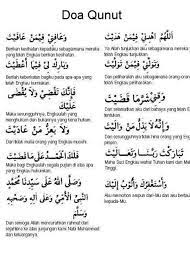 Doa Qunut
اَللّٰهُمَّ اهْدِنِيْ فِيْمَنْ هَدَيْتَ
Ya Allah tunjukkan aku sebagaimana mereka
yang telah Engkau
وَعَافِنِيْ فِيْمَنْ عَافَيْتَ
Berikan kesihatan kepadaku sebagaimana mereka
yang telah Engkau berikan kesihatan
وَتَوَلَّنِيْ فِيْمَنْ تَوَلَّيْتَ
Dan peliharakan aku sebagaimana orang yang telah
Engkau
وَبَارِكْ لِيْ فِيْمَا أَعْطَيْتَ
Berilah keberkatan bagiku pada apa-apa yang
telah Engkau
وَقِنِيْ شَرَّ مَا قَضَيْتَ
Dan selamatkan aku dari bahaya yang telah Engkau
فَإِنَّكَ تَقْضِيْ وَلَا يُقْضَى عَلَيْكَ
Maka sesungguhnya, Engkaulah yang
dan bukannya yang kena hukum
وَإِنَّهُ لَا يَذِلُّ مَنْ وَالَيْتَ
Dan sesungguhnya tidak hina orang yang
Engkau
وَلَا يَعِزُّ مَنْ عَادَيْتَ
Dan tidak mulia orang yang Engkau
تَبَارَكْتَ رَبَّنَا وَتَعَالَيْتَ
Maha Suci Engkau wahai Tuhan kami dan
فَلَكَ الْحَمْدُ عَلَى مَا قَضَيْتَ
Maka bagi Engkaulah segala pujian di atas apa
yang Engkau hukumkan
أَسْتَغْفِرُكَ وَأَتُوْبُ إِلَيْكَ
Aku memohon ampun dari-Mu dan aku bertaubat
kepada-Mu.
وَصَلَّى اللهُ عَلَى سَيِّدِنَا مُحَمَّدٍ
النَّبِيِّ الْأُمِّيِّ وَعَلَى آلِهِ وَصَحْبِهِ
وَسَلَّمَ
Dan semoga Allah mencurahkan rahmat dan
sejahtera ke atas junjungan kami Nabi Muhammad
dan keluarganya